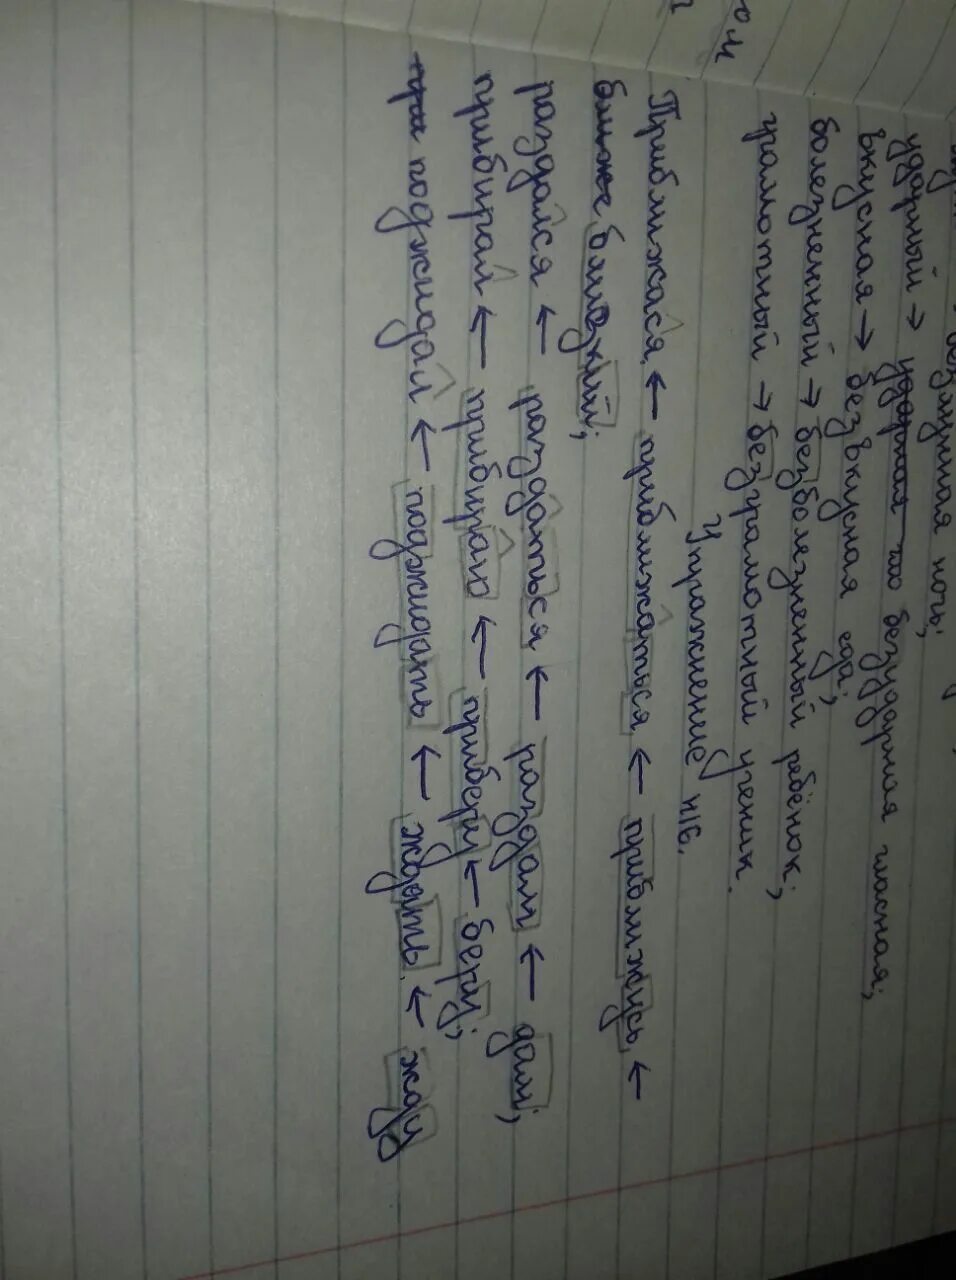 безлунная ночь;
ударный → ударная гл безударная гласная;
вкусная → безвкусная еда;
болезненный → безболезненный ребёнок;
грамотный → безграмотный ученик.
Упражнение н16.
Приближася ← приближаться ← приближусь ←
ближе близкий;
раздался ← раздаться ← раздали ← дали;
прибирал ← прибираю ← приберу ← беру;
при поджидал ← поджидать ← ждать ← жду